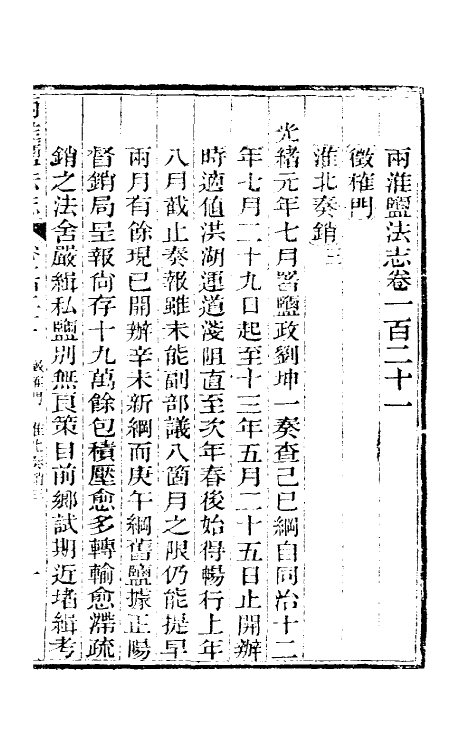 兩淮鹽法志卷一百二十一
徵榷門
淮北奏銷三
光緒元年七月署鹽政劉坤一奏查己巳綱自同治十二
年七月二十九日起至十三年五月二十五日止開辦
時適值洪湖運道淺阻直至次年春後始得暢行上年
八月截止奏報雖未能副部議八箇月之限仍能提早
兩月有餘現已開辦辛未新綱而庚午綱舊鹽據正陽
督銷局呈報尙存十九萬餘包積壓愈多轉輸愈滯疏
銷之法舍嚴緝私鹽別無良策目前鄉試期近堵緝考